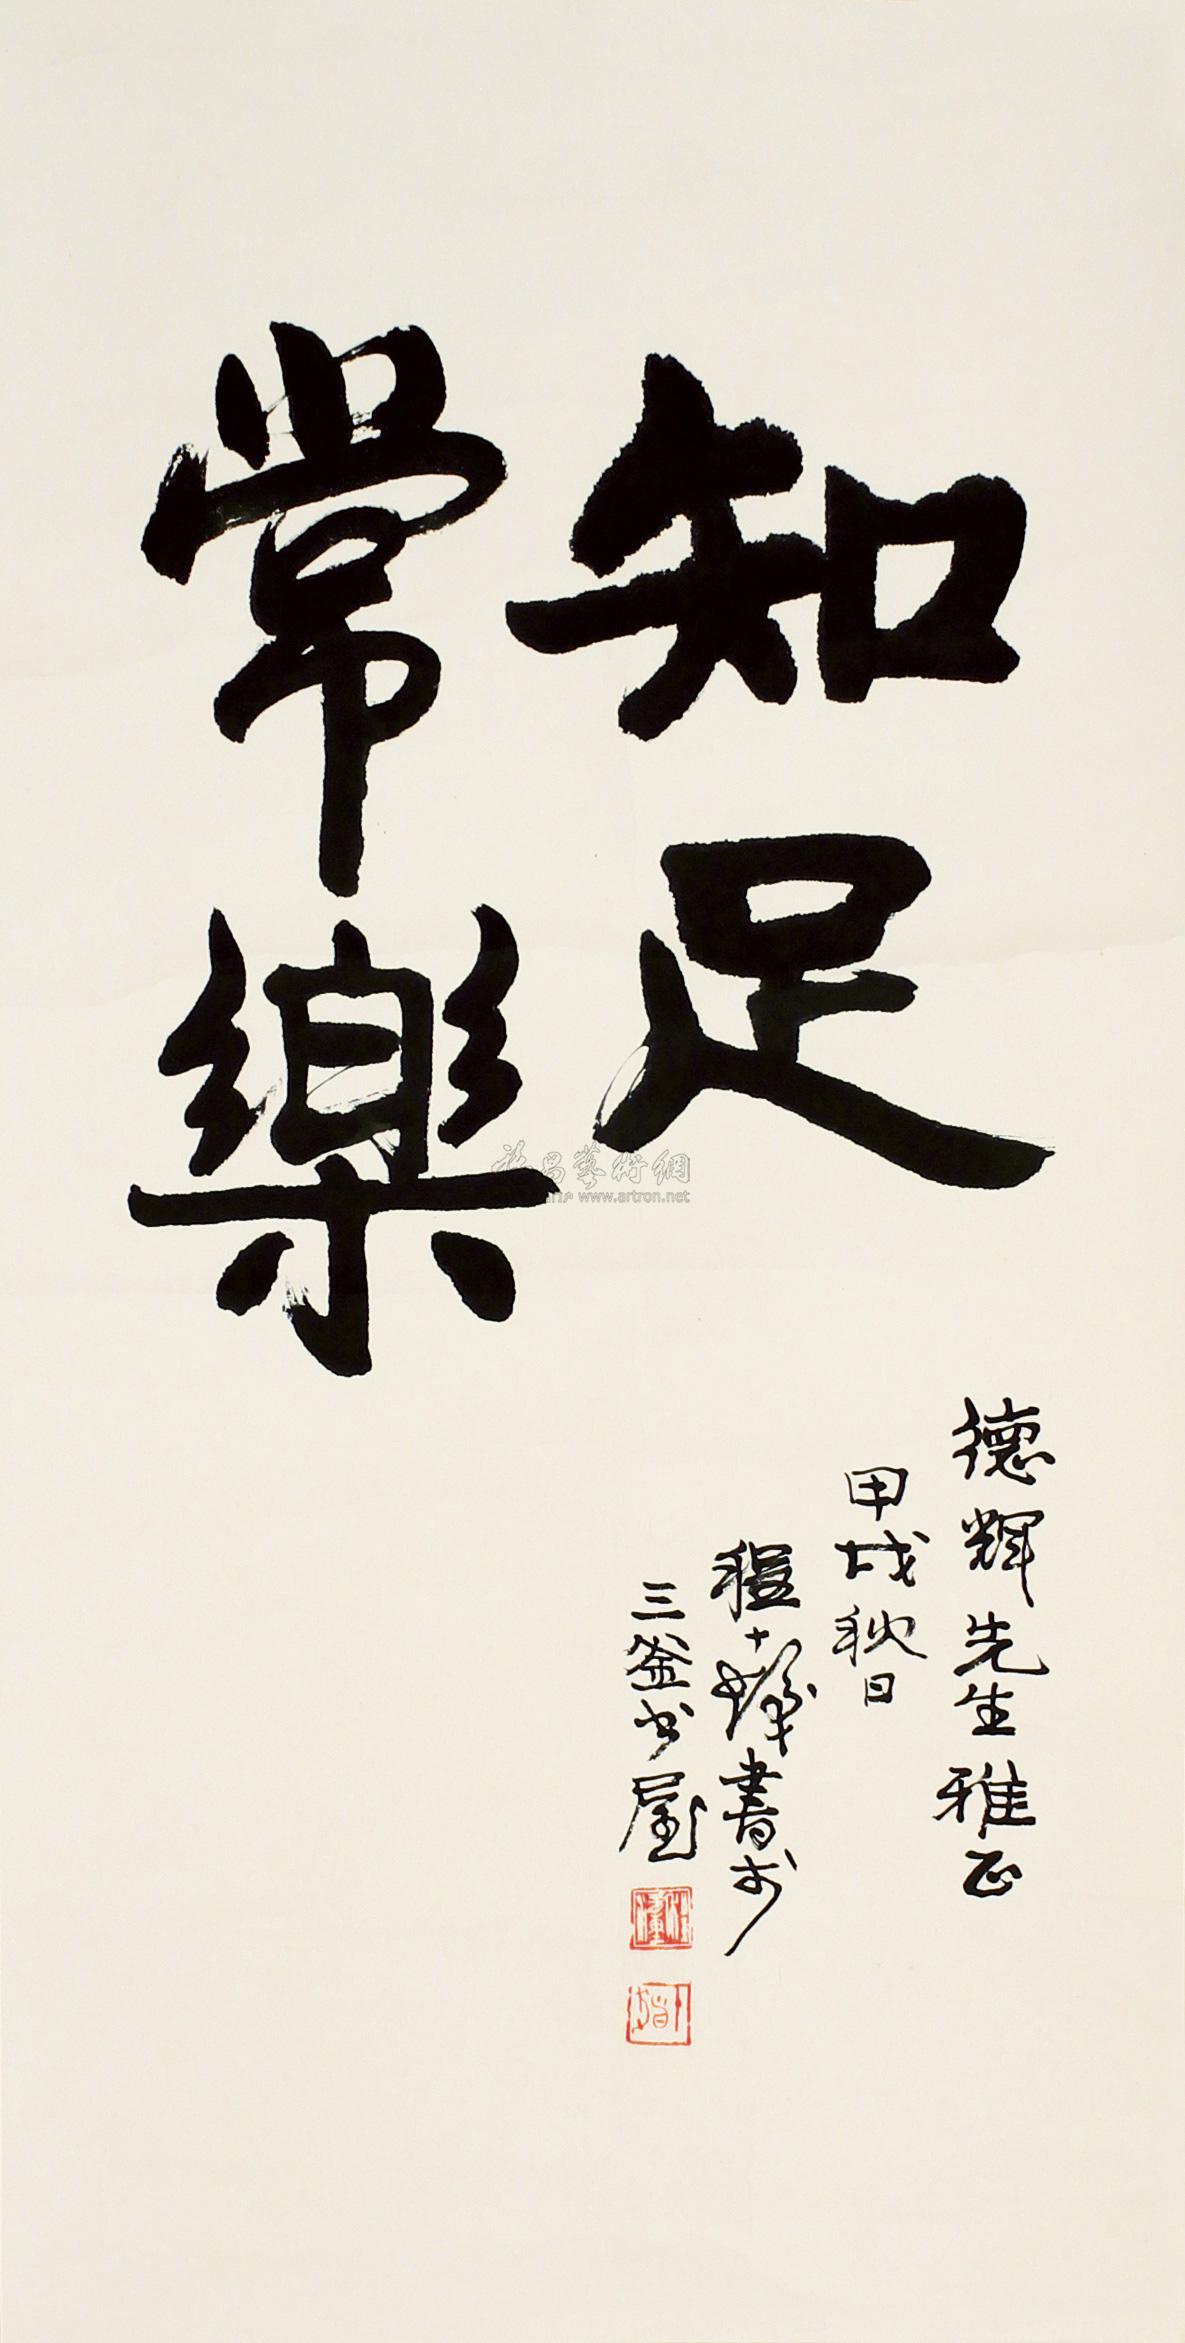 知足
常樂
德輝先生雅正
甲戌秋日
程十發書於
三釜書屋
www.artron.net